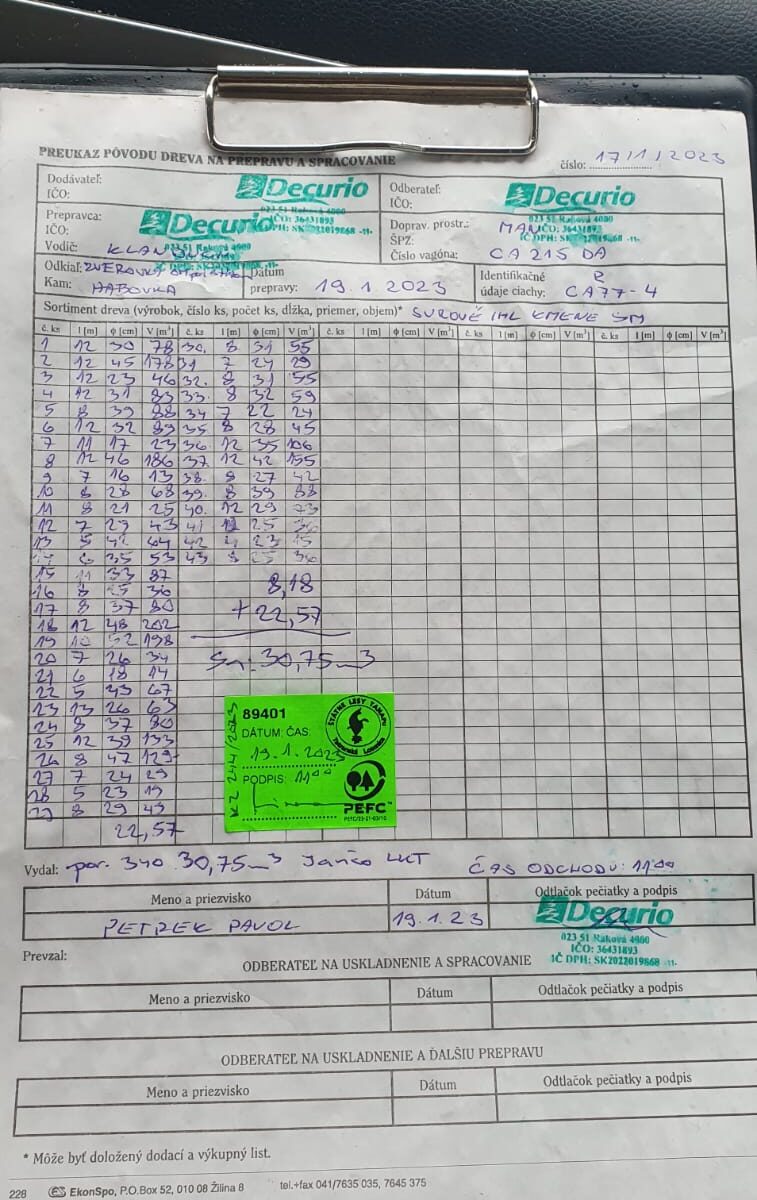 PREUKAZ PÔVODU DREVA NA PREPRAVU A SPRACOVANIE
číslo: 17/1/2023
Dodávateľ:
IČO:
Decurio
023 51 Raková 4000
IČO: 36431893
IČ DPH: SK2022019868 -11-
Odberateľ:
IČO:
Decurio
023 51 Raková 4000
IČO: 36431893
IČ DPH: SK2022019868 -11-
Prepravca:
IČO:
Decurio
Vodič:
Doprav. prostr.: MAN
ŠPZ:
Číslo vagóna: CA 215 DA
Odkiaľ: ZVEROVKA
Kam: HABOVKA
Dátum
prepravy: 19.1.2023
Identifikačné
údaje ciachy: CA77-4
Sortiment dreva (výrobok, číslo ks, počet ks, dĺžka, priemer, objem)* SUROVÉ IHL KMENE SM
č. ks l [m] φ [cm] V [m³] č. ks l [m] φ [cm] V [m³] č. ks l [m] φ [cm] V [m³] č. ks l [m] φ [cm] V [m³]
1 12 30 78 30. 8 31 55
2 12 45 178 31 7 24 29
3 12 23 46 32. 8 31 55
4 12 31 83 33. 8 32 59
5 8 39 88 34 7 22 24
6 12 32 89 35 8 28 45
7 11 17 23 36 12 35 106
8 12 46 186 37. 12 42 155
9 7 16 13 38. 8 27 42
10 8 28 68 39. 8 39 88
11 8 21 25 40. 12 29 73
12 7 29 43 41 25
13 5 42 64 42 23 15
14 6 35 53 43 8 25 36
15 11 33 87
16 8 25 36 8,18
17 8 37 80 + 22,57
18 12 48 202
19 10 52 198
20 7 26 34 30,75 m3
21 6 18 14
22 5 43 67
23 13 26 63
24 8 37 80
25 12 39 133
26 8 47 129
27 7 24 29
28 5 23 19
29 8 29 49
22,57
KZ 244/2023
89401
DÁTUM: ČAS:
19.1.2023
PODPIS: 11⁰⁰
ŠTÁTNE LESY TANAPU
Tatranská Lomnica
PEFC™
PEFC/23-21-03/10
Vydal: por. 340 30,75 m3 Jančo LKT ČAS ODCHODU: 11⁰⁰
Meno a priezvisko Dátum Odtlačok pečiatky a podpis
PETREK PAVOL 19.1.23
Decurio
023 51 Raková 4000
IČO: 36431893
IČ DPH: SK2022019868 -11-
Prevzal:
ODBERATEĽ NA USKLADNENIE A SPRACOVANIE
Meno a priezvisko Dátum Odtlačok pečiatky a podpis
ODBERATEĽ NA USKLADNENIE A ĎALŠIU PREPRAVU
Meno a priezvisko Dátum Odtlačok pečiatky a podpis
* Môže byť doložený dodací a výkupný list.
228 EkonSpo, P.O.Box 52, 010 08 Žilina 8 tel.+fax 041/7635 035, 7645 375